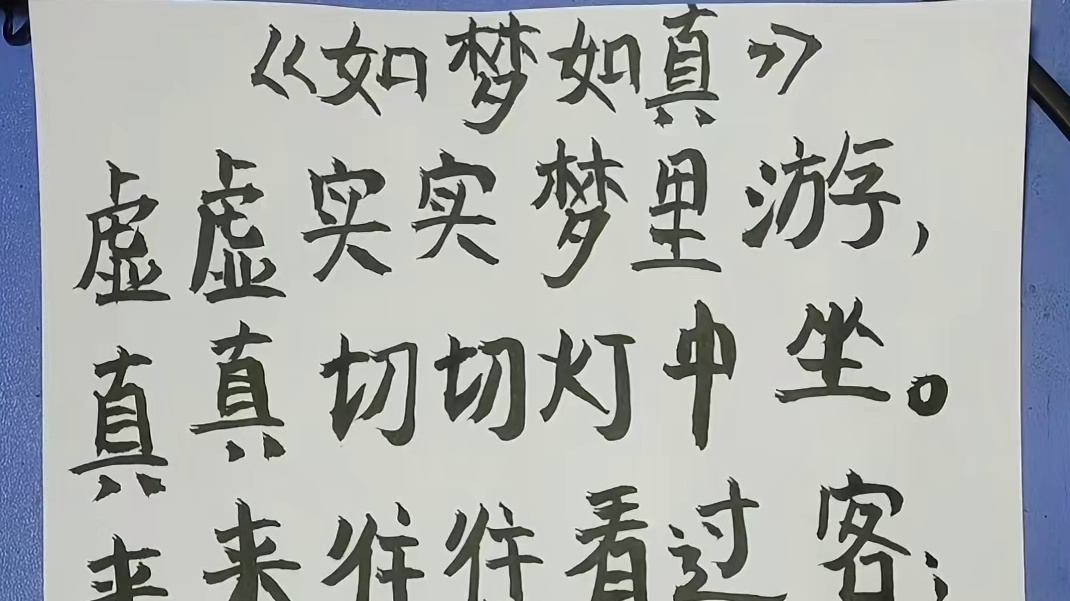 《如梦如真》
虚虚实实梦里游，
真真切切灯中坐。
来来往往看过客；